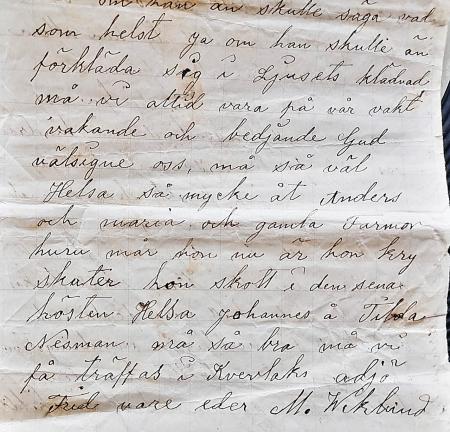 om han än skulle säga vad
som helst ja om han skulle än
förkläda sig i Ljusets klädnad
må vi altid vara på vår vakt
vakande och bedjande Gud
välsigne oss, må så väl
Helsa så mycke åt Anders
och maria och gamla Farmor
huru mår hon nu är hon kry
skuter hon skott i den sena
hösten Helsa Johannes å Tilda
Nesman må så bra må vi
få träffas i Kvevlaks adjö
Frid vare eder M. Wiklund